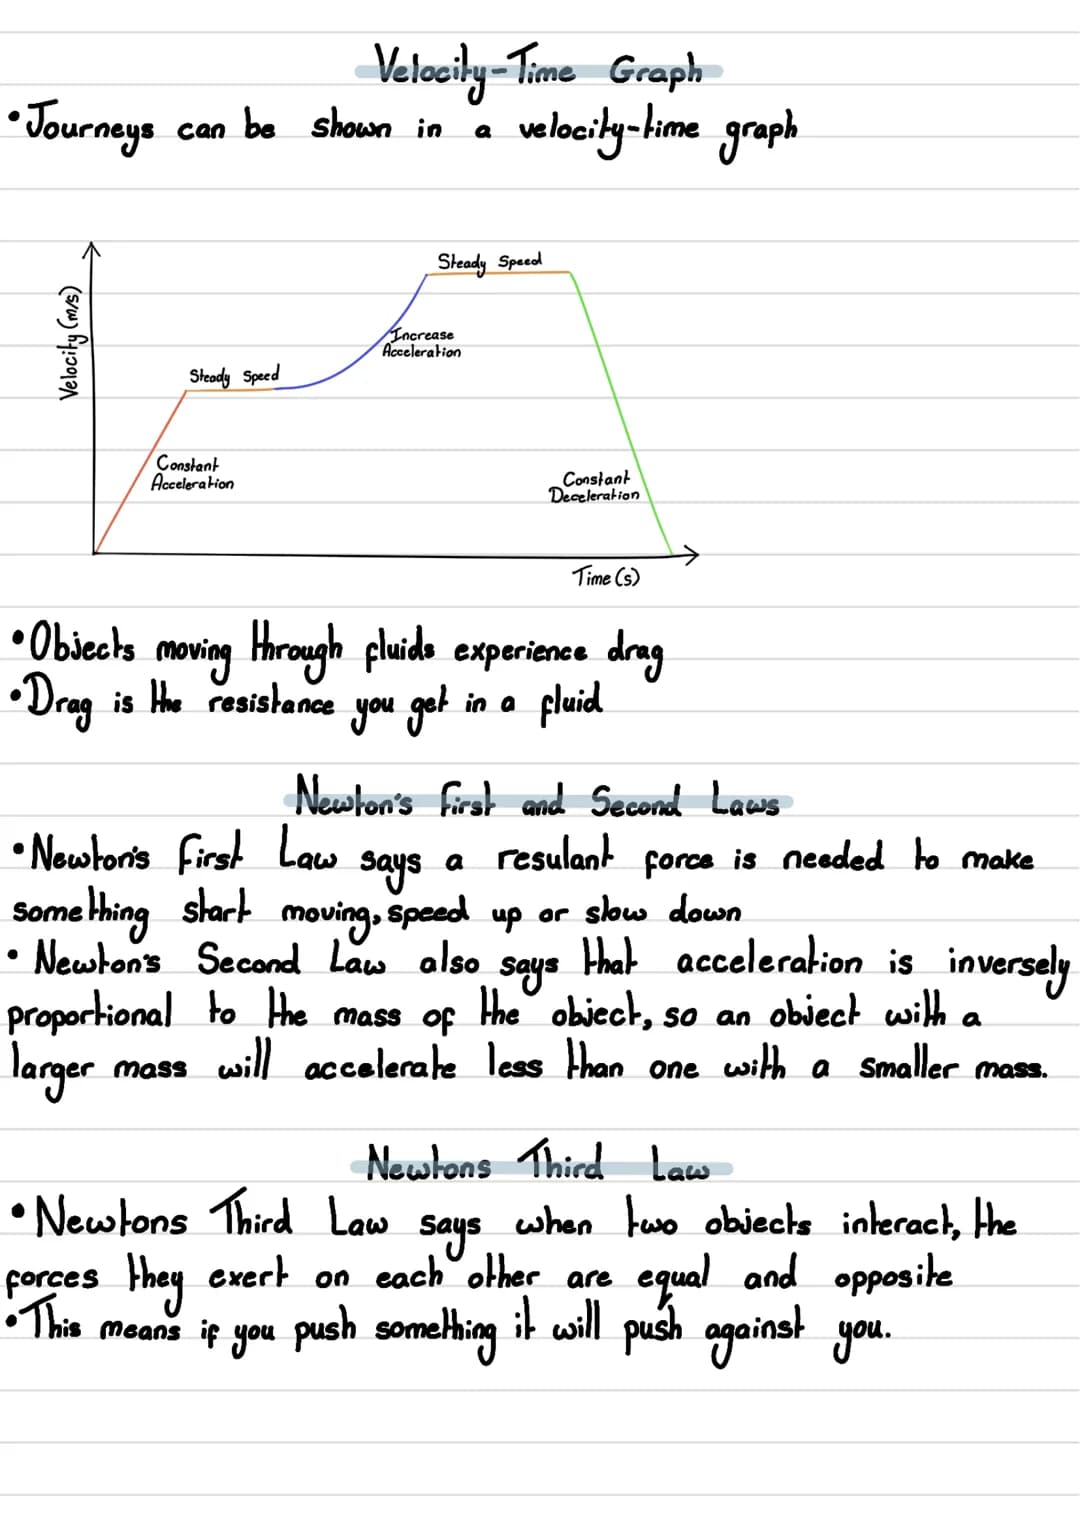 Velocity-Time Graph
•Journeys can be shown in a velocity-time graph
Steady Speed
Velocity (m/s)
Increase
Acceleration
Steady Speed
Constant
Acceleration
Constant
Deceleration
Time (s)
•Objects moving through fluids experience drag
•Drag is the resistance you get in a fluid
Newton's First and Second Laws
•Newton's First Law says a resulant force is needed to make
something start moving, speed up or slow down
• Newton's Second Law also says that acceleration is inversely
proportional to the mass of the object, so an object with a
larger mass will accelerate less than one with a smaller mass.
Newtons Third Law
•Newtons Third Law says when two objects interact, the
forces they exert on each other are equal and opposite
•This means if you push something it will push against you.